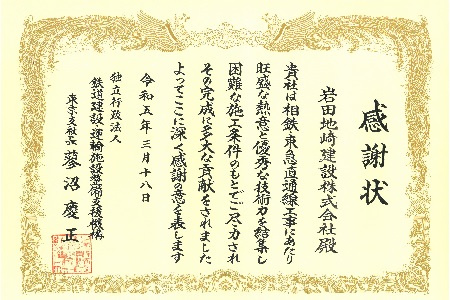 感謝状
岩田地崎建設株式会社殿
貴社は相鉄・東急直通線工事にあたり
旺盛な熱意と優秀な技術力を結集し
困難な施工条件のもとでご尽力され
その完成に多大な貢献をされました
よってここに深く感謝の意を表します
令和五年三月十八日
独立行政法人
鉄道建設・運輸施設整備支援機構
東京支社長 蓼沼慶正